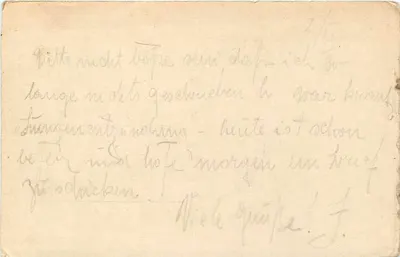 Bitte nicht böse sein daß ich so
lange nichts geschrieben h. war krank
Lungenentzündung – heute ist schon
besser und hoffe morgen ein Brief
zu schicken
Viele Grüße! J.